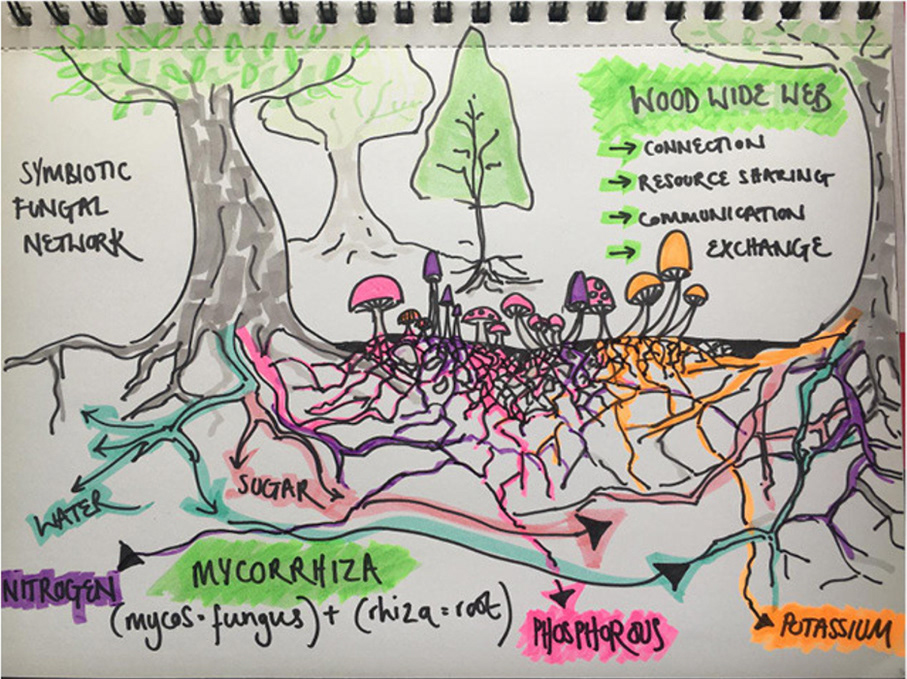 SYMBIOTIC
FUNGAL
NETWORK
WOOD WIDE WEB
→ CONNECTION
→ RESOURCE SHARING
→ COMMUNICATION
→ EXCHANGE
SUGAR
WATER
NITROGEN
MYCORRHIZA
(mycos = fungus) + (rhiza = root)
PHOSPHOROUS
POTASSIUM